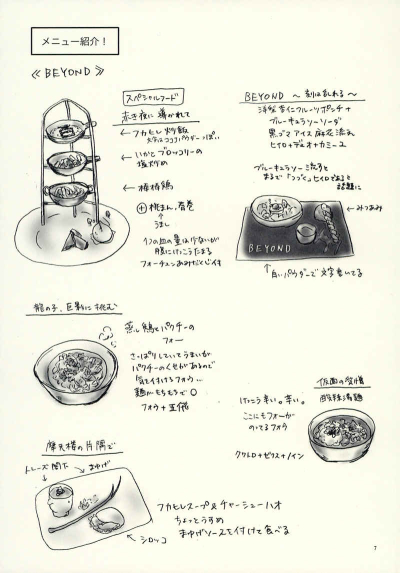 メニュー紹介！
≪BEYOND≫
スペシャルフード
赤き夜に導かれて
← フカヒレ炒飯
← いかとブロッコリーの
塩炒め
← 棒棒鶏
⊕ 桃まん、春巻
↑
うまし
1つの皿の量は少ないが
腹にけっこうたまる
フォーチュンあみだくじ付
BEYOND ～刻は乱れる～
洋梨 杏仁フルーツポンチ+
ブルーキュラソーソーダ
黒ゴマアイス 麻花 流元
ヒイロ+デュオ+カミーユ
ブルーキュラソー流すと
まるで
話題に
← みつあみ
BEYOND
白いパウダーで文字書いてる
龍の子、巨影に挑む
蒸し鶏とパクチーの
フォー
さっぱりしていてうまいが
パクチーのくせがあるので
気を付けるフォウ…
鶏がもちもちで○
フォウ+五飛
仮面の賢慎
酸辣湯麺
けっこう辛い。辛い。
ここにもフォーが
のってるフォウ
クワトロ+ゼクス+ノイン
摩天楼の片隅で
トレーズ閣下
まゆげ
シロッコ
フカヒレスープ&チャーシューバオ
ちょっとうすめ
まゆげソースを付けて食べる
7